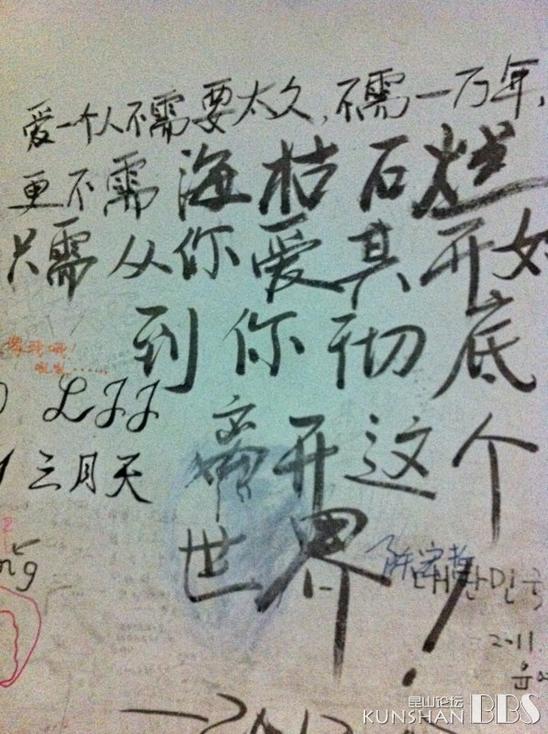 爱一个人不需要太久,不需一万年,
更不需海枯石烂
只需从你爱其开始
到你彻底
离开这个
世界!
LJJ
三月天
ng
대한민국
2011.
昆山论坛
KUNSHAN BBS